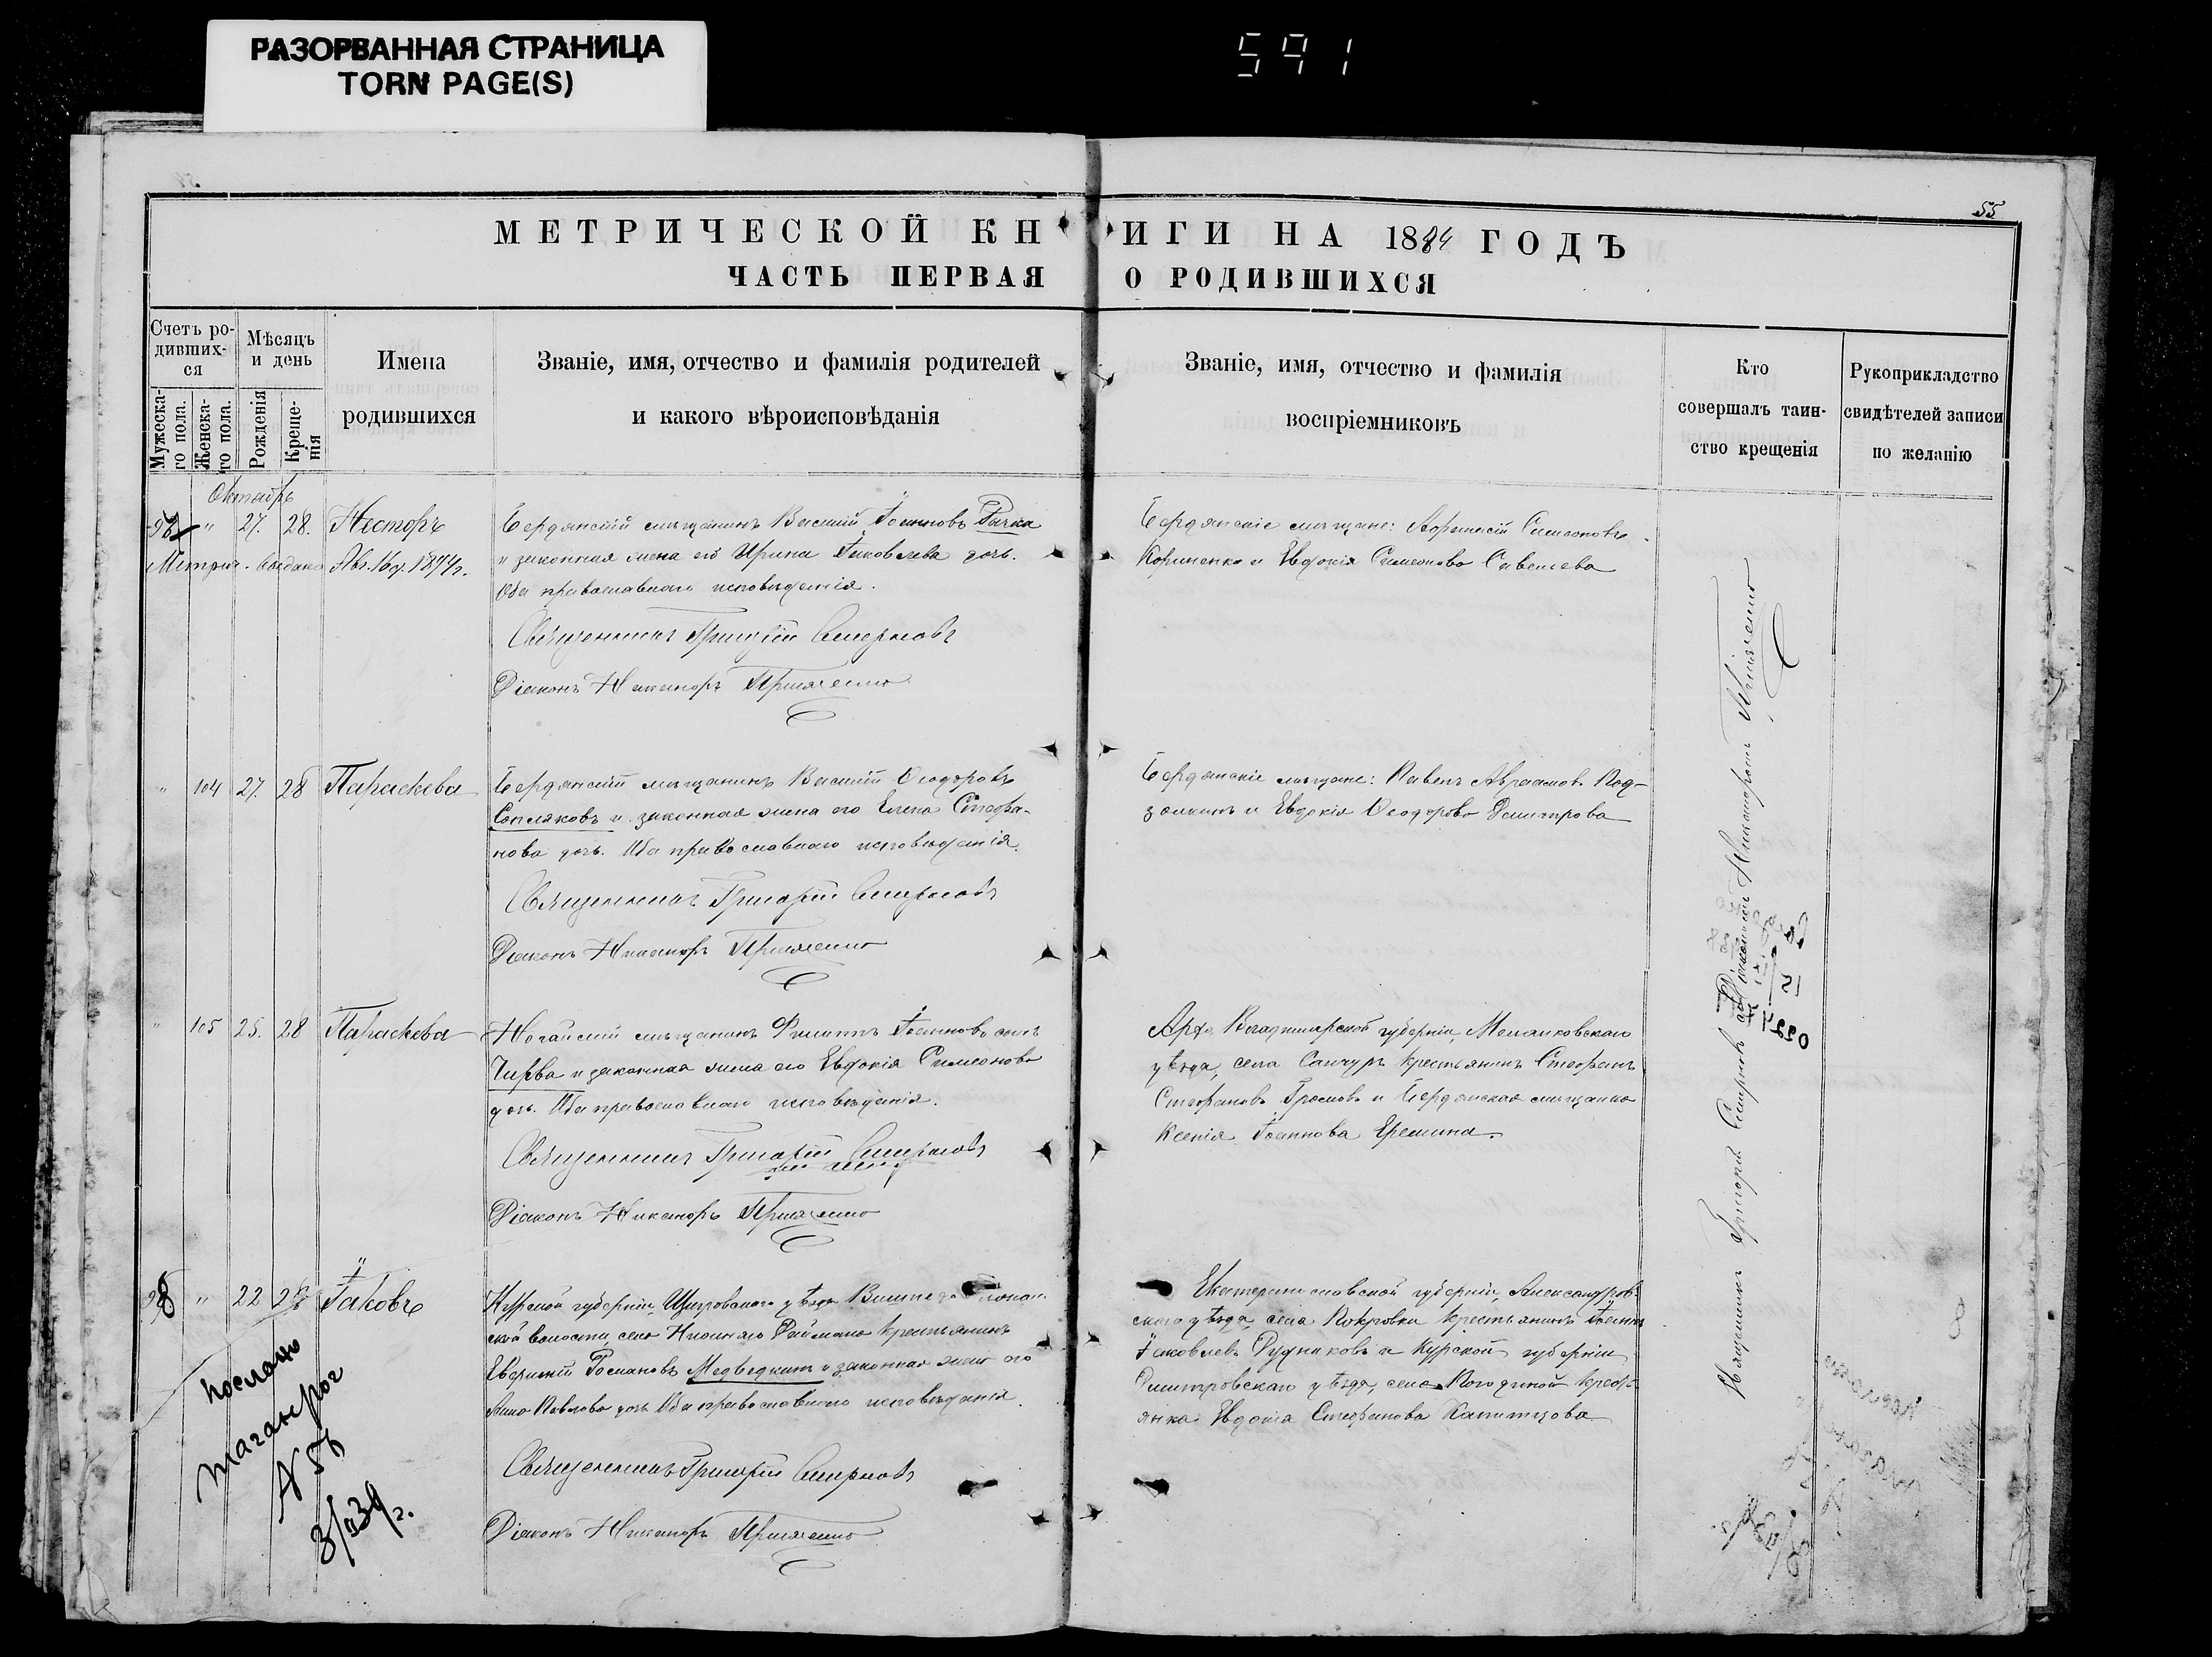 РАЗОРВАННАЯ СТРАНИЦА
TORN PAGE(S)
591
55
МЕТРИЧЕСКОЙ КНИГИ НА 1884 ГОДЪ
ЧАСТЬ ПЕРВАЯ О РОДИВШИХСЯ
Счетъ ро-
дивших-
ся
Мужеска-
го пола.
Женска-
го пола.
Мѣсяцъ
и день
Рожденія
Креще-
нія
Имена
родившихся
Званіе, имя, отчество и фамилія родителей
и какого вѣроисповѣданія
Званіе, имя, отчество и фамилія
воспріемниковъ
Кто
совершалъ таин-
ство крещенія
Рукоприкладство
свидѣтелей записи
по желанію
Октябрь
" 27. 28. Несторъ
Метрич. выдана Авг. 16 д. 1894 г.
Бердянскій мѣщанинъ Василій Іоанновъ
и законная жена его Ирина Іаковлева дочь.
Оба православнаго исповѣданія.
Священникъ Григорій Смирновъ
Діаконъ Никаноръ
Бердянскіе мѣщане: Аѳанасій Симеоновъ
и Евдокія Симеонова Савельева
" 104 27. 28 Параскева
Бердянскій мѣщанинъ Василій Ѳеодоровъ
Сопляковъ и законная жена его Елена Стефа-
нова дочь. Оба православнаго исповѣданія.
Священникъ Григорій Смирновъ
Діаконъ Никаноръ
Бердянскіе мѣщане: Павелъ Авраамовъ Под-
и Евдокія Ѳеодорова Димитрова
" 105 25. 28 Параскева
Ногайскій мѣщанинъ Филиппъ Іоанновъ сынъ
Чирва и законная жена его Евдокія Симеонова
дочь. Оба православнаго исповѣданія.
Священникъ Григорій Смирновъ
Діаконъ Никаноръ
Владимирской губерніи, Меленковскаго
уѣзда, села Санчуръ крестьянинъ Стефанъ
Стефановъ Громовъ и Бердянская мѣщанка
Ксенія Іоаннова Еремина.
98 " 22 28 Іаковъ
Курской губерніи, Щигровскаго уѣзда
ской волости, села Нижняго крестьянинъ
Евфимій Романовъ Медведкинъ и законная жена его
Анна Павлова дочь Оба православнаго исповѣданія.
Священникъ Григорій Смирновъ
Діаконъ Никаноръ
Екатеринославской губерніи, Александров-
скаго уѣзда, села Покровки крестьянинъ Іоаннъ
Іаковлевъ Рудниковъ и Курской губерніи
Димитровскаго уѣзда, села крест-
янка Евдокія Стефанова
послано
Таганрог
N 56
Священникъ Григорій Смирновъ съ Діакономъ Никаноромъ